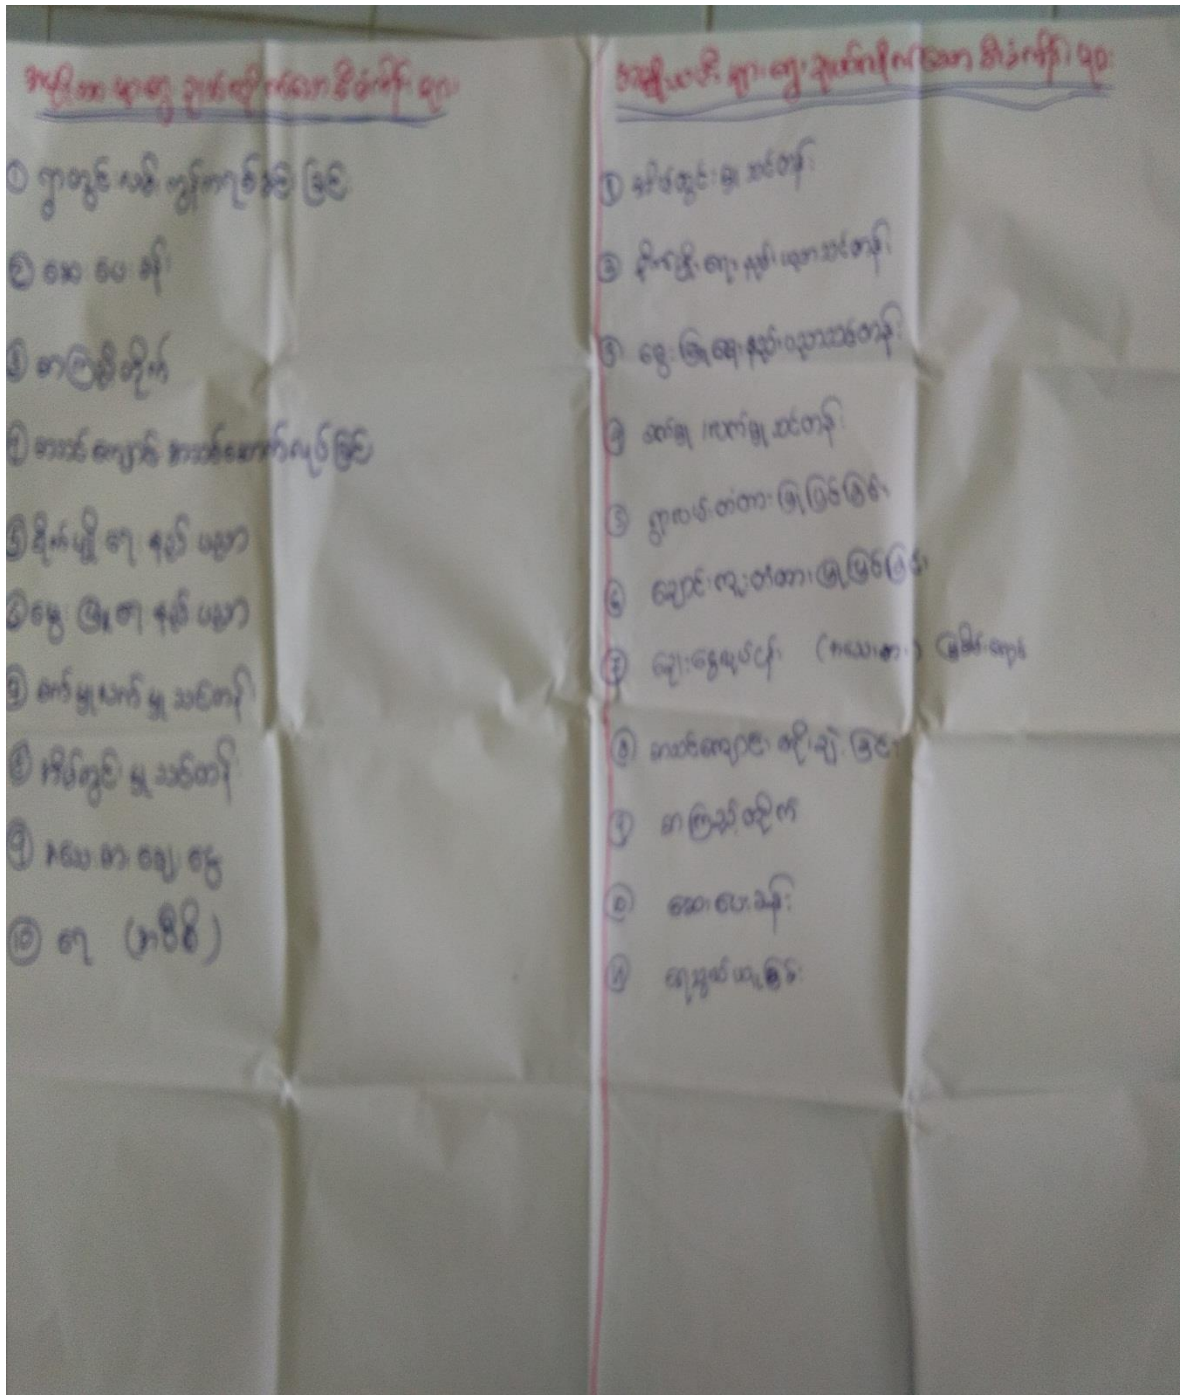 အမျိုးသားများတွေ့ ချမှတ်လိုက်သော စီမံကိန်း ၁၀ ခု
① ရွာတွင်းလမ်း ကွန်ကရစ်ခင်းခြင်း
② ဆေးပေးခန်း
③ စာကြည့်တိုက်
④ စာသင်ကျောင်း စာသင်ဆောင်လုပ်ခြင်း
⑤ စိုက်ပျိုးရေး နည်းပညာ
⑥ မွေးမြူရေး နည်းပညာ
⑦ စက်မှုလက်မှု သင်တန်း
⑧ အိမ်တွင်းမှု သင်တန်း
⑨ အသေးစား ချေးငွေ
⑩ ရေ (အဝီစိ)
အမျိုးသမီးများတွေ့
① အိမ်တွင်းမှု သင်တန်း
② စိုက်ပျိုးရေး နည်းပညာသင်တန်း
③ မွေးမြူရေး နည်းပညာသင်တန်း
④ စက်မှု၊ လက်မှု သင်တန်း
⑤ ရွာလမ်းတံတား ပြုပြင်ခြင်း
⑥ ချောင်းကူးတံတား ပြုပြင်ခြင်း
⑦ ချေးငွေလုပ်ငန်း (အသေးစား)
⑧ စာသင်ကျောင်း တိုးချဲ့ခြင်း
⑨ စာကြည့်တိုက်
⑩ ဆေးပေးခန်း
⑪ ရေသွယ်ယူခြင်း